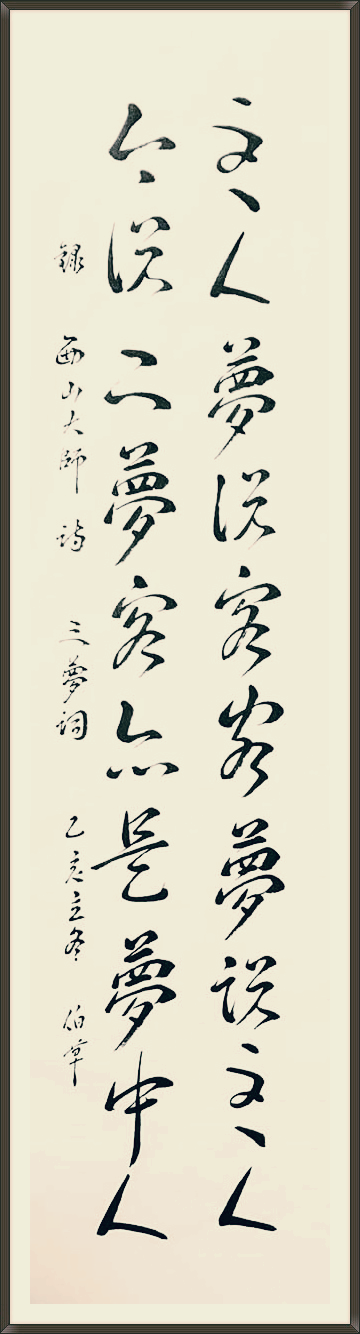 主人夢説客客夢説主人
今説二夢客亦是夢中人
錄 西山大師 詩 三夢詞 乙亥立冬 伯草